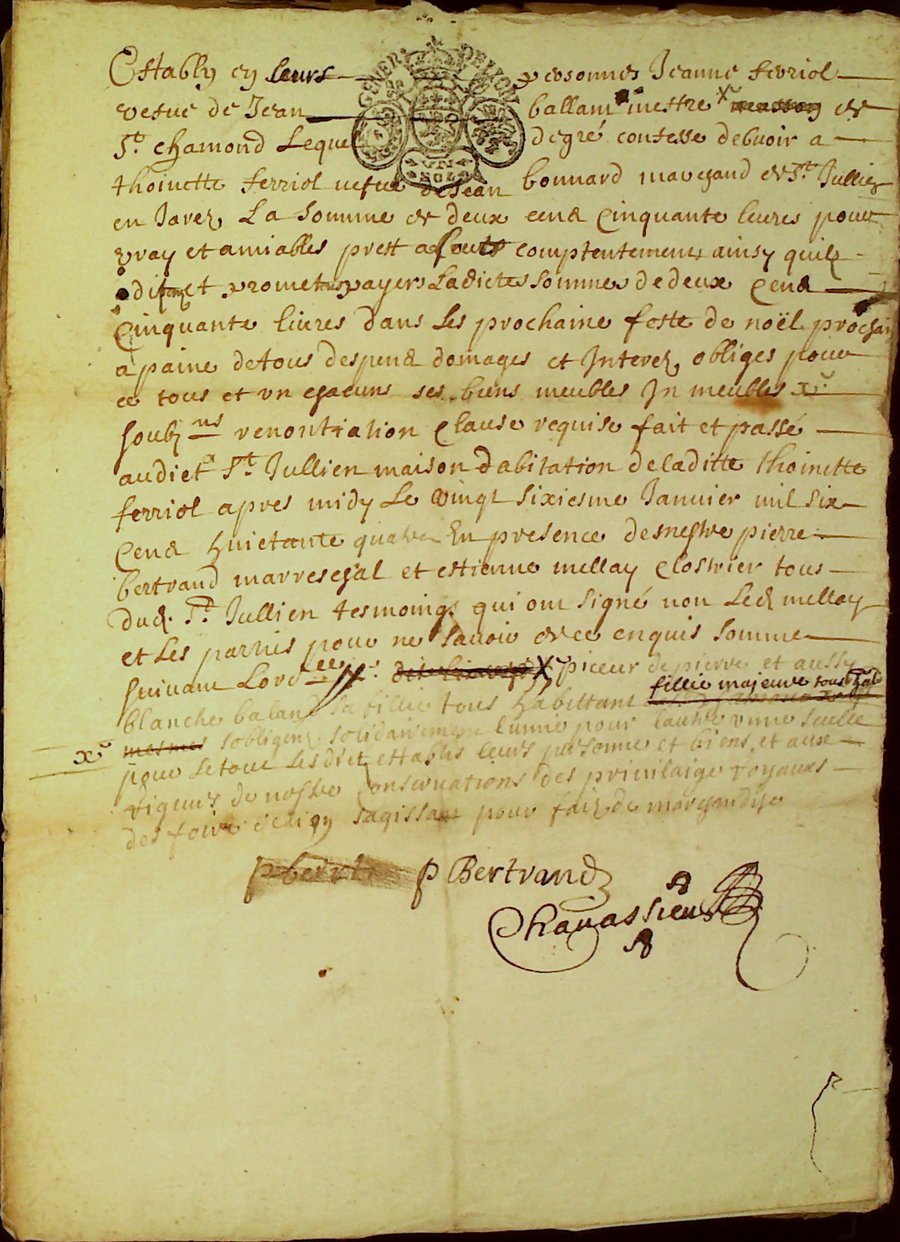 Establÿ ey leurs personnes Jeanne ferriol
vefue de Jean ballam mestre de
St chamond Leque degré confesse debuoir a
thoinette ferriol vefue de Jean bonnard marchand de St Jullien
en Jarez La somme de deux cend Cinquante liures pour
vray et amiables prest a comptentement ainsy quil
promet payer Ladicte somme de deux Cend
Cinquante liures dans les prochaine feste de noël prochain
a paine de tous despend domages et Interez obliges pour
ce tous et un chacuns ses biens meubles In meubles
soubz renontiation Clause requise fait et passé
audict St Jullien maison dabitation de laditte thoinette
ferriol apres midy Le vingt sixiesme Januier mil six
Cend huictante quatre En presence de mestre pierre
bertrand marreschal et estienne mellay Clostrier tous
dud. St Jullien tesmoings qui ont signé non Led mellay
et Les parties pour ne sauoir de ce enquis somme
suiuant Lord piceur de pierre et aussy
fillie majeure tous
blanche baland sa fillie tous habittant
mesmes sobligent solidairement lunne pour lautre unne seulle
pour Letout Lesdict establis leurs personne et biens et aux
rigeurs de nostre Conseruations des priuilaige royaux
des foire sagissant pour fait de marchandise
P Bertrand
Chauassieu
GENER DE LYON